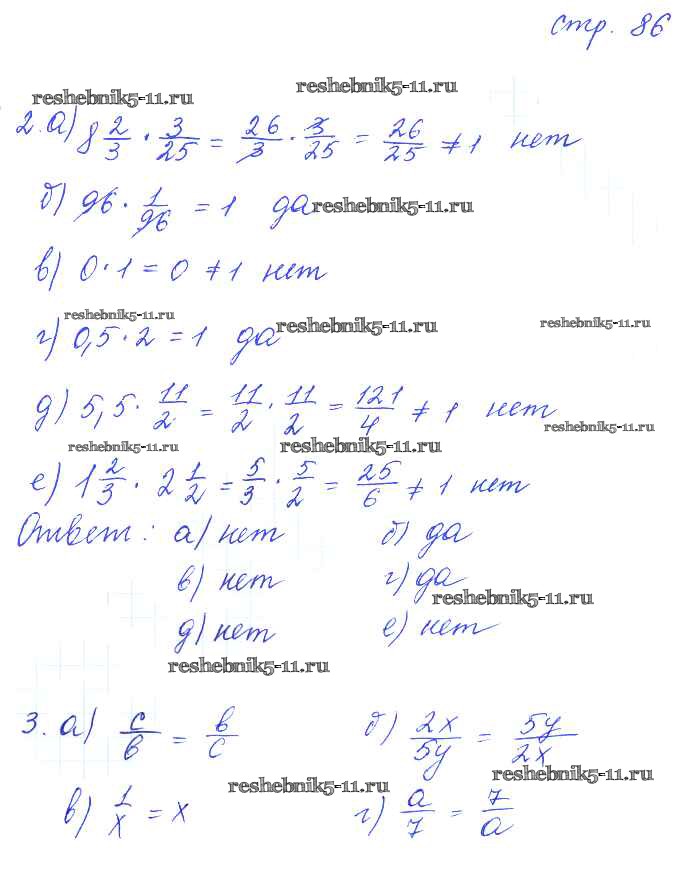 стр. 86
reshebnik5-11.ru
reshebnik5-11.ru
2. а) 8 2/3 · 3/25 = 26/3 · 3/25 = 26/25 ≠ 1 нет
б) 96 · 1/96 = 1 да
reshebnik5-11.ru
в) 0 · 1 = 0 ≠ 1 нет
reshebnik5-11.ru
г) 0,5 · 2 = 1 да
reshebnik5-11.ru
reshebnik5-11.ru
д) 5,5 · 11/2 = 11/2 · 11/2 = 121/4 ≠ 1 нет
reshebnik5-11.ru
reshebnik5-11.ru
reshebnik5-11.ru
е) 1 2/3 · 2 1/2 = 5/3 · 5/2 = 25/6 ≠ 1 нет
Ответ: а) нет б) да
в) нет г) да
reshebnik5-11.ru
д) нет е) нет
reshebnik5-11.ru
3. а) c/b = b/c б) 2x/5y = 5y/2x
reshebnik5-11.ru
reshebnik5-11.ru
в) 1/x = x г) a/7 = 7/a